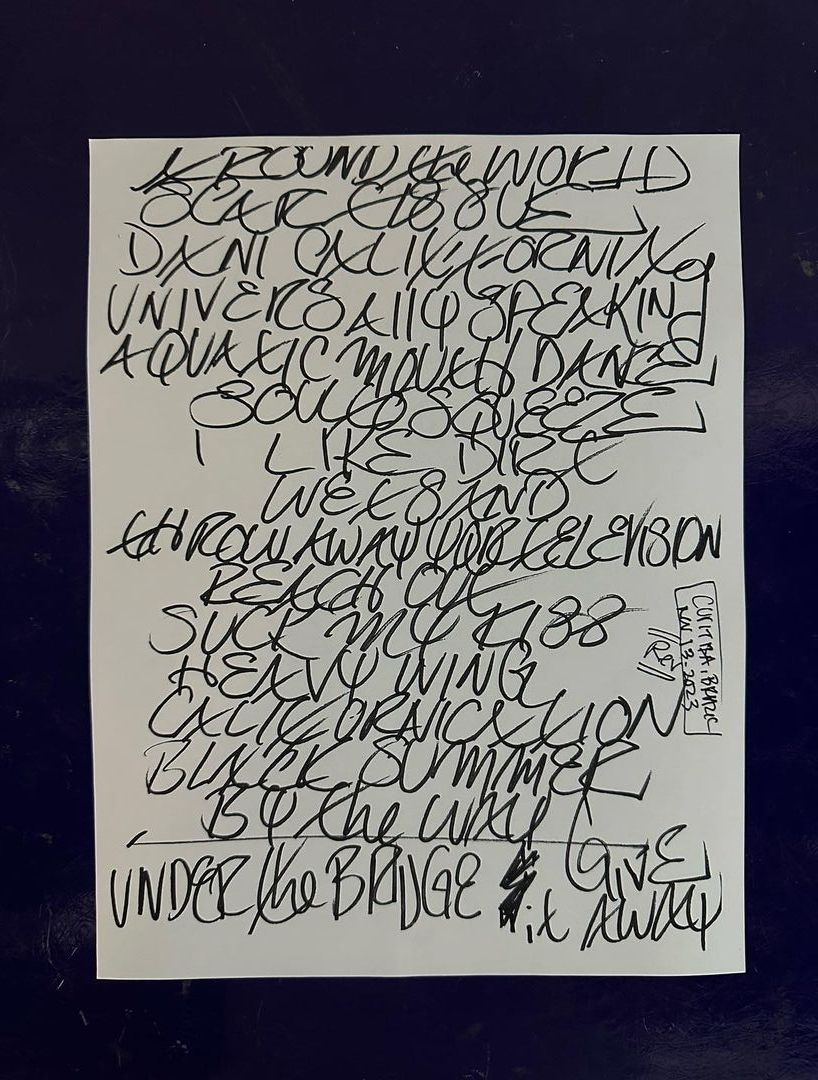 AROUND the WORLD
SCAR TISSUE
DANI CALIFORNIA
UNIVERSAllY SPEAKING
AQUATIC MOUTH DANCE
SOUL TO SQUEEZE
I LIKE DIRT
WET SAND
thROW AWAY YOUR TELEVISION
REACH OUT
SUCK MY KISS
HEAVY WING
CALIFORNICATION
BLACK SUMMER
BY the WAY
UNDER the BRIDGE
GIVE
it AWAY
CURITIBA, BRAZIL
NOV 13. 2023